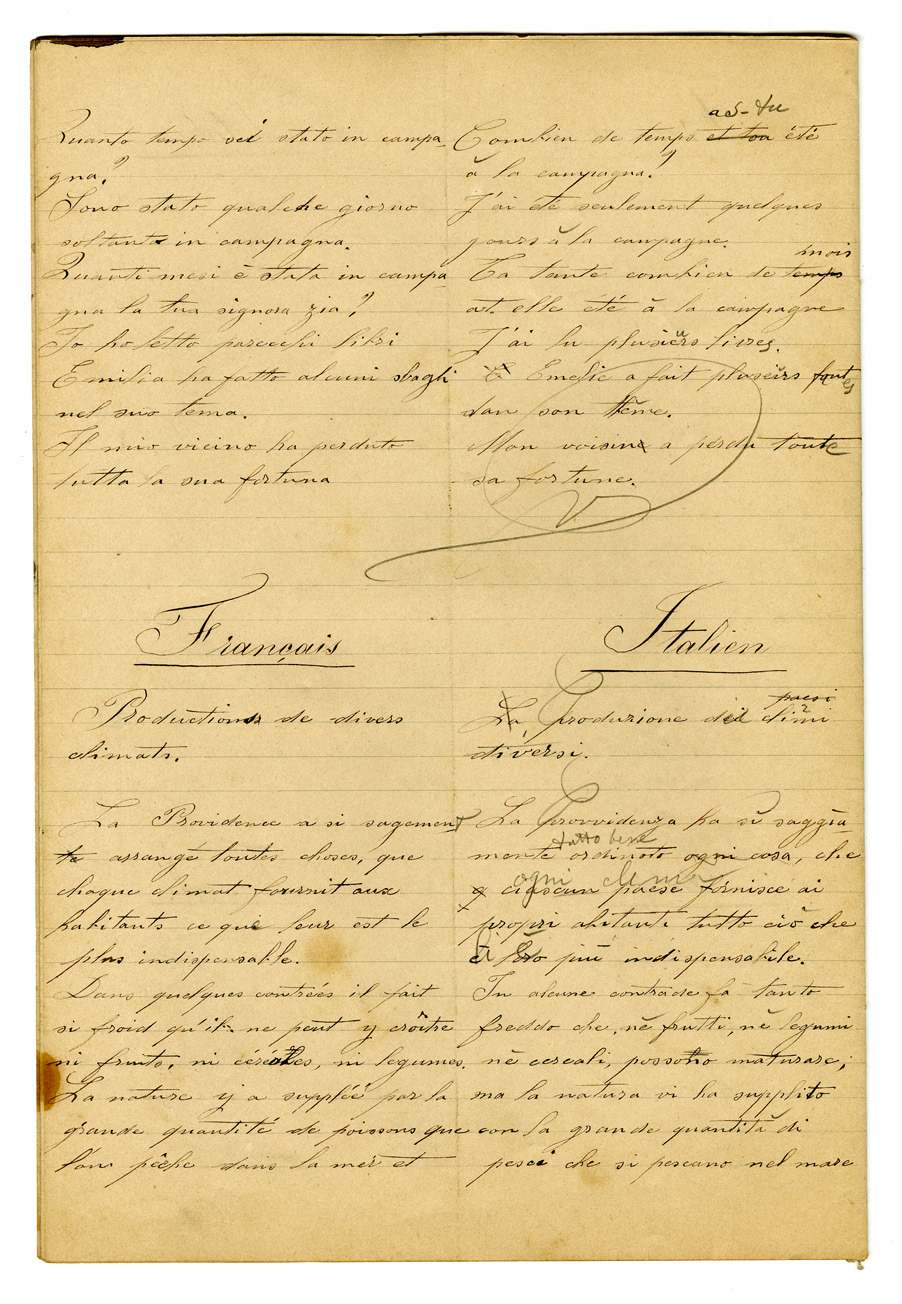 Quanto tempo sei stato in campa-
gna?
Sono stato qualche giorno
soltanto in campagna.
Quanti mesi è stata in campa
gna la tua signora zia?
Io ho letto parecchi libri
Emilia ha fatto alcuni sbagli
nel suo tema.
Il mio vicino ha perduto
tutta la sua fortuna
as-tu
Combien de temps et toa été
à la campagna?
J'ai été seulement quelques
jours à la campagne.
mois
Ta tante combien de temps
at. elle été à la campagne
J'ai lu plusiers livres.
Emelie a fait pluseirs fautes
dan son thême.
Mon voisine a perdu toute
sa fortune.
Français
Productions de divers
climats.
La Providence a si sagement
arrangé toutes choses, que
chaque climat fournit aux
habitants ce que leur est le
plus indispensable.
Dans quelques contrées il fait
si froid qu'il ne peut y croître
ni fruits, ni céréales, ni legumes.
La nature y a suppléé par la
grande quantité de poissons que
l'on pêche dans la mer et
Italien
paesi
La, produzione dei climi
diversi.
La Provvidenza ha sì saggia
tutto bene
mente ordinato ogni cosa, che
ogni clima
ciascun paese fornisce ai
propri abitanti tutto ciò che
è più indispensabile.
In alcune contrade fa tanto
freddo che, nè frutti, nè legumi
nè cereali, possono maturare;
ma la natura vi ha supplito
con la grande quantità di
pesci che si pescano nel mare